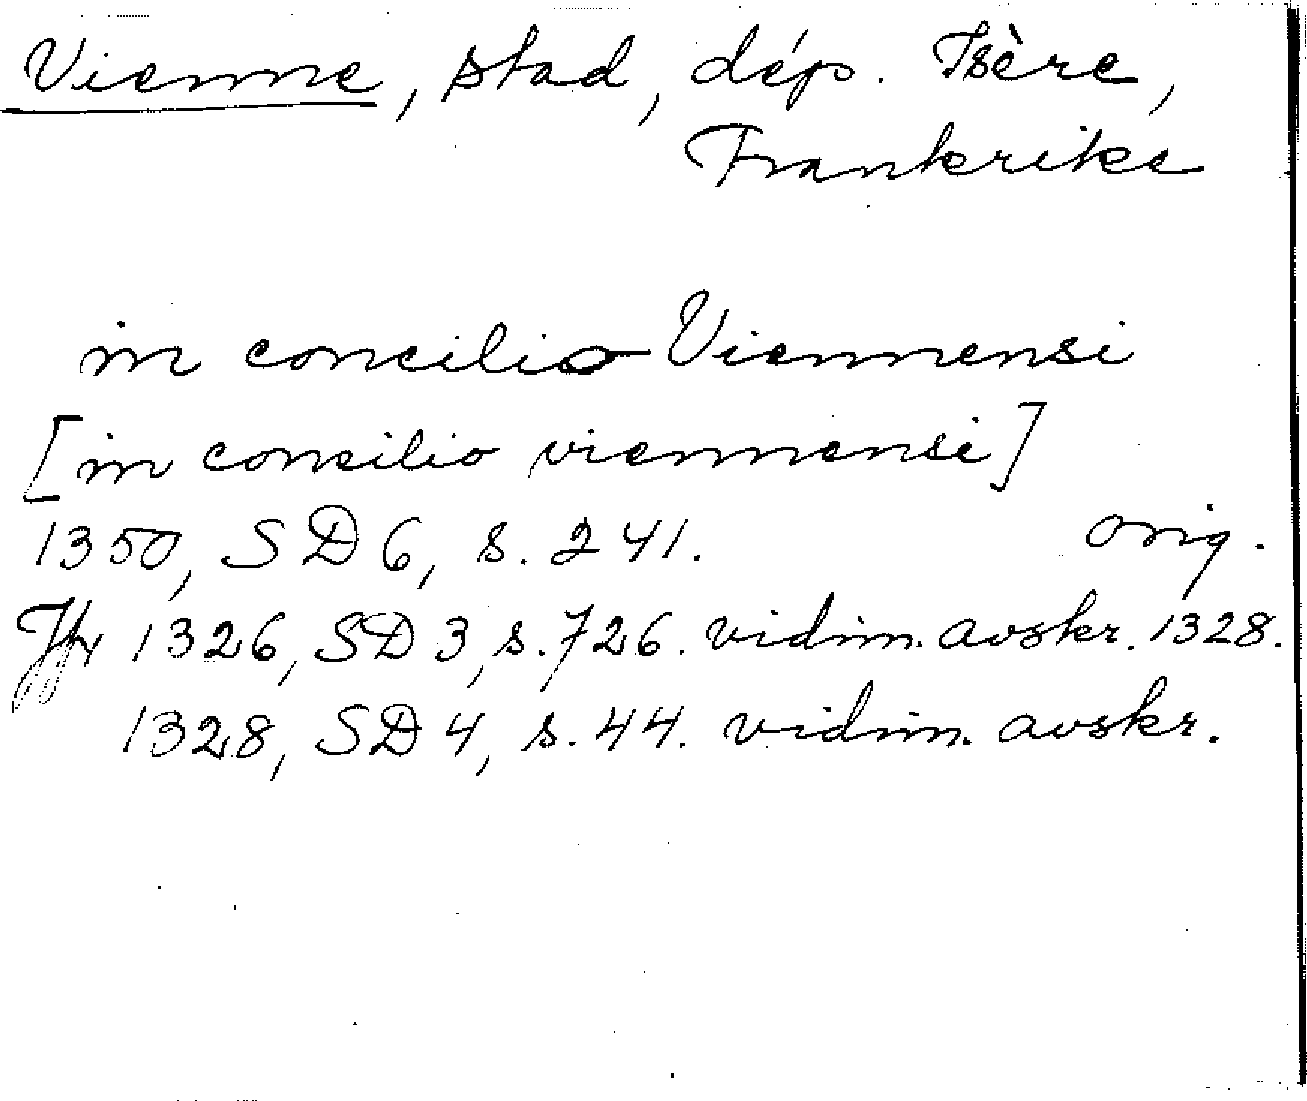 Vienne, stad, dép. Isère,
Frankrike
in concilio Viennensi
[in consilio viennensi]
1350, SD 6, s. 241. orig.
Jfr 1326, SD 3, s. 726. vidim. avskr. 1328.
1328, SD 4, s. 44. vidim. avskr.